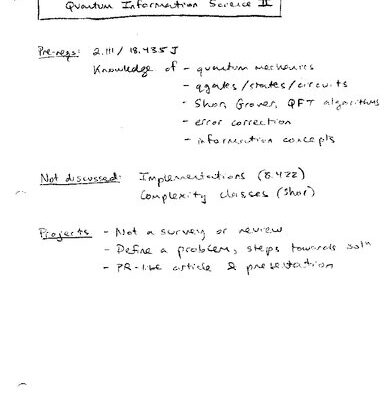 Quantum Information Science II
Pre-reqs: 2.111 / 18.435J
Knowledge of - quantum mechanics
- qgates/states/circuits
- Shor, Grover, QFT algorithms
- error correction
- information concepts
Not discussed: Implementations (8.422)
Complexity classes (Shor)
Projects - Not a survey or review
- Define a problem, steps towards soln
- PR-like article & presentation